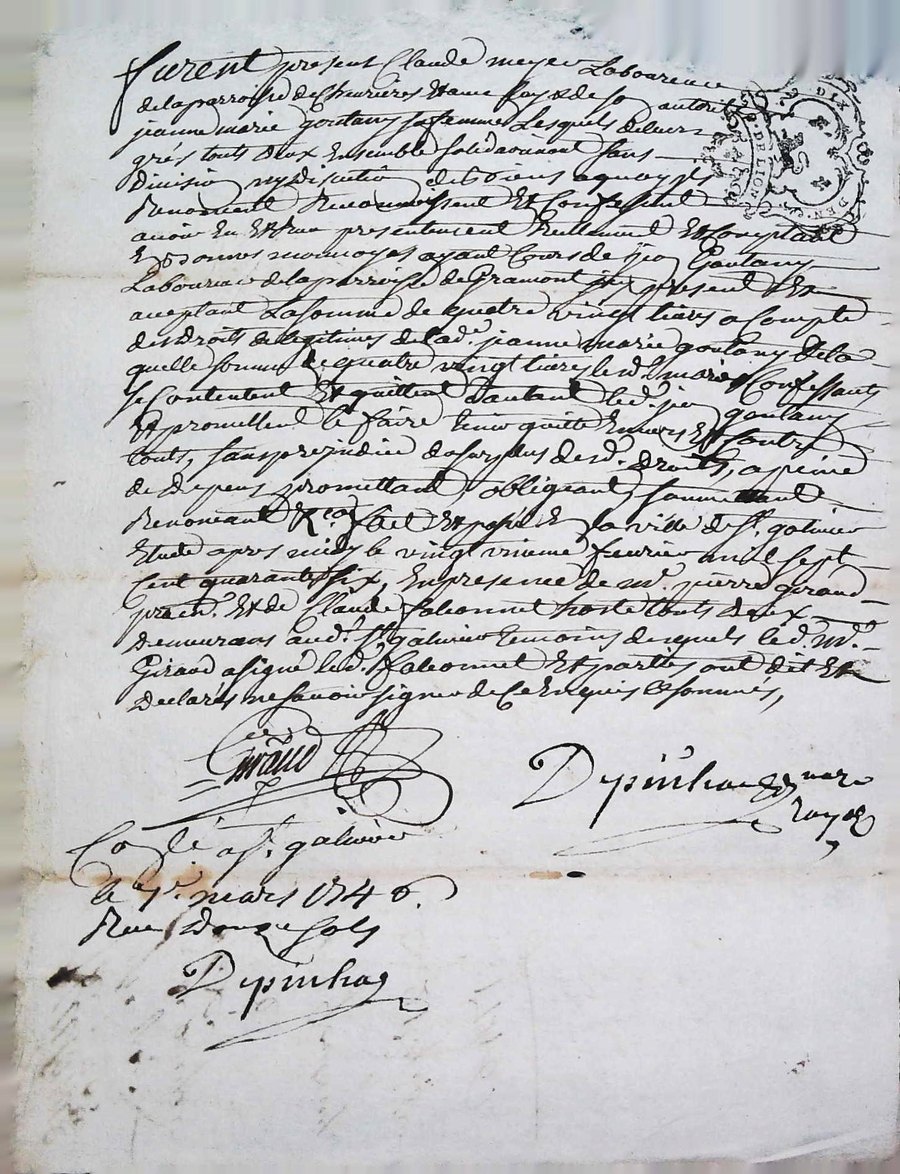 furent present Claude meyer Laboureur
de la parroisse de Chevrières et avec luy et de so autorité
jeanne marie goutany sa femme Lesquels de leur
grés touts deux Ensemble solidairement sans
Division ny discution de biens a quoy ils
Renoncent Reconnoissent et Confessent
avoir Eu et Receu presentement reellement et comptant
En bonnes monnoyes ayant Cours de Goutany
Laboureur de la parroisse de Gramont present et
acceptant La somme de quatre vingt livres a Compte
des droits de legitimes de lad. jeanne marie goutany de la
quelle somme de quatre vingt livres les d. mariés Confessants
se Contentent et quittent d'autant led. goutany
Et promettent le faire tenir quitte Envers et Contre
touts, sans prejudice du surplus desd. droits, a peine
de depens promettant, obligeant, soumettant
Renoncant &ca fait et passé En la ville de St. galmier
Etude apres midy le vingt fevrier mil sept
Cent quarante six, En presence de mr. pierre giraud
pratn. Et de Claude faleonnet hoste touts deux
Demeurans aud. St. galmier temoins desquels led. mr.
Giraud a signé led. faleonnet Et parties ont dit et
declarés ne savoir signer de Ce Enquis et sommés,
Giraud
Depinhac nore
royal
Conlé a St. galmier
le 1er. mars 1746.
Reçu Douze sols
Depinhac
DELION
DEN.
DIX